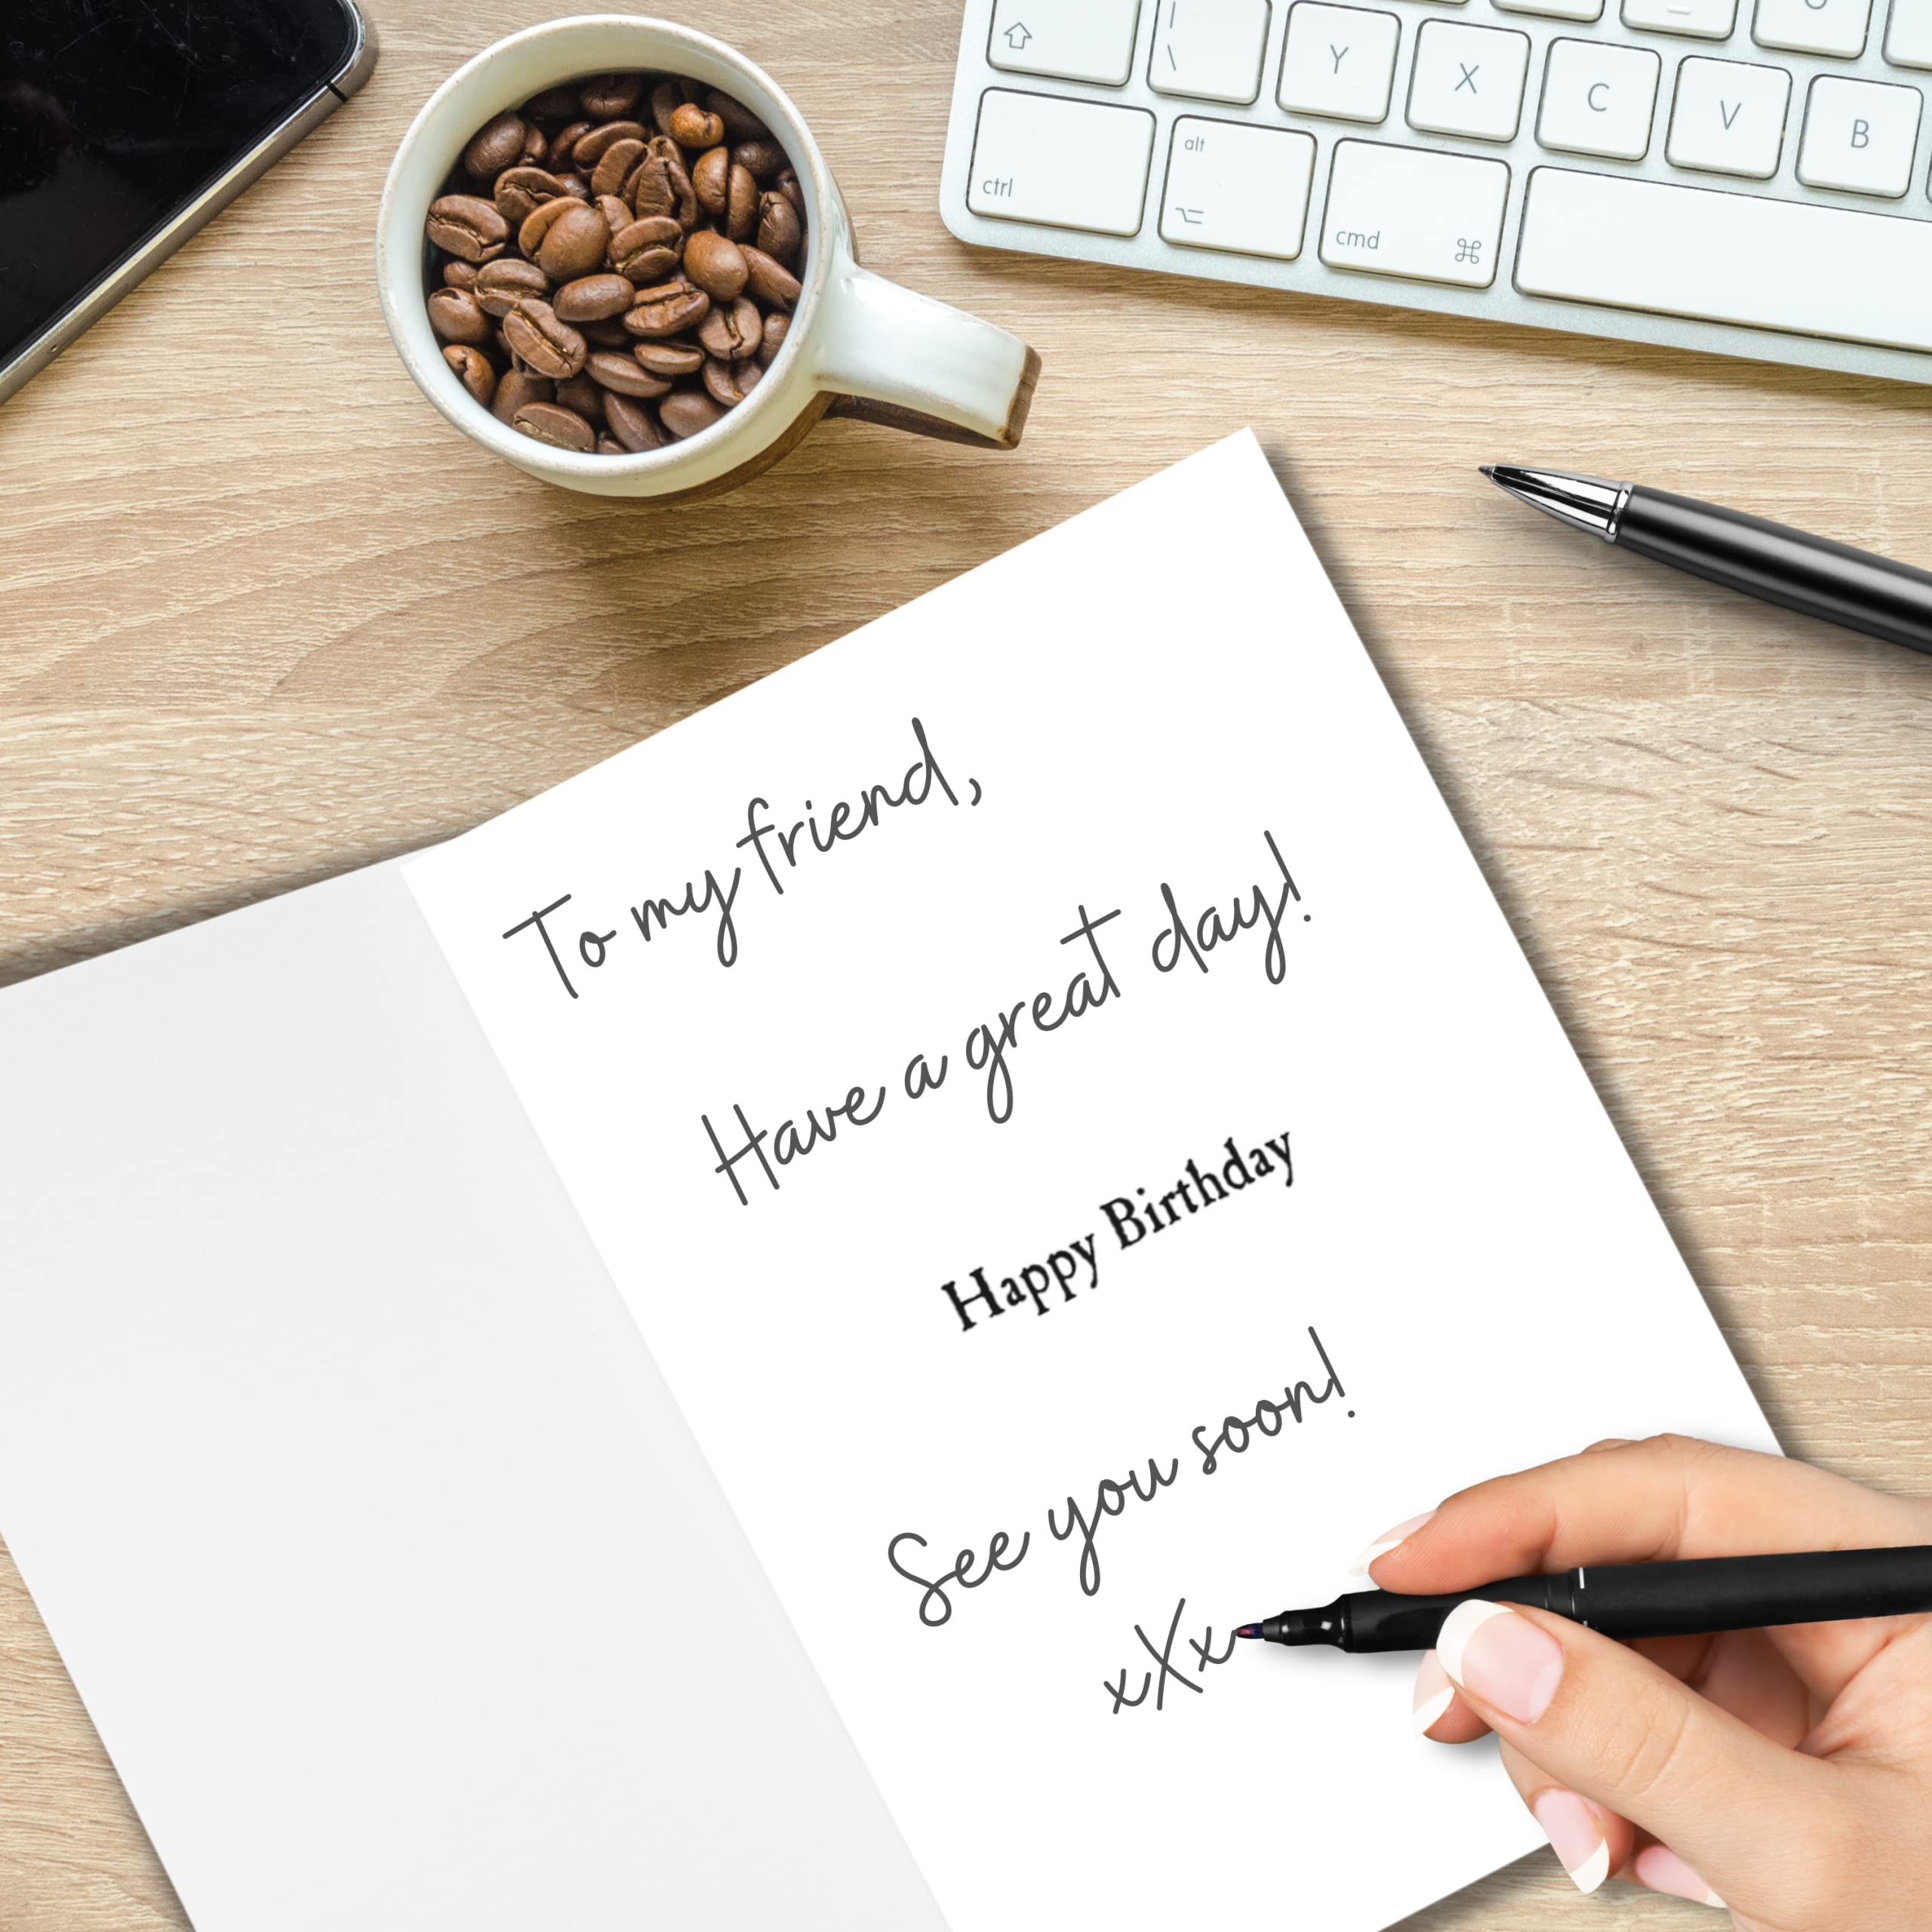 ⇧ | \ Y X C V B
ctrl alt ⌥ cmd ⌘
To my friend,
Have a great day!
Happy Birthday
See you soon!
xXx